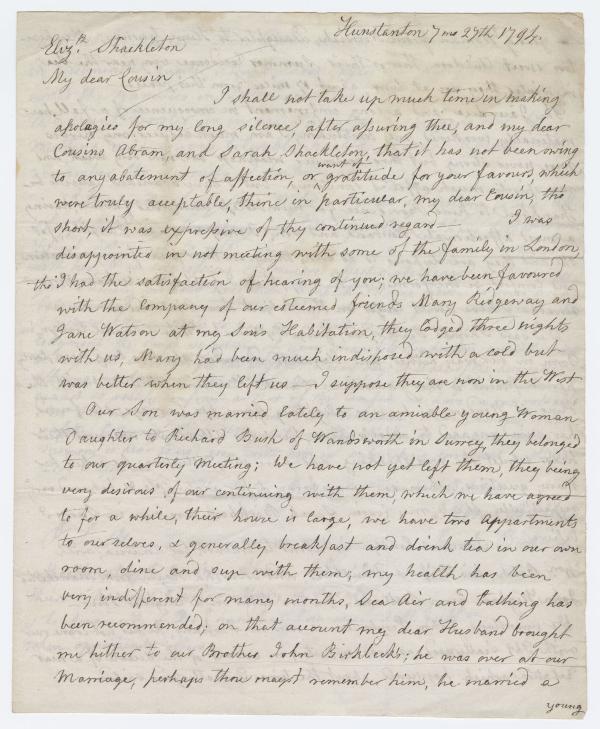 Hunstanton 7mo 27th 1794.
Elizth. Shackleton
My dear Cousin
I shall not take up much time in making
apologies for my long silence, after assuring thee, and my dear
Cousins Abram, and Sarah Shackleton, that it has not been owing
to any abatement of affection, or want of gratitude for your favours which
were truly acceptable, thine in particular, my dear Cousin, tho'
short, it was expressive of thy continued regard — I was
disappointed in not meeting with some of the family in London,
tho' I had the satisfaction of hearing of you; we have been favoured
with the company of our esteemed friends Mary Ridgeway and
Jane Watson at my Son's Habitation, they lodged three nights
with us, Mary had been much indisposed with a cold but
was better when they left us — I suppose they are now in the West
Our Son was married lately to an amiable young Woman
Daughter to Richard Bush of Wandsworth in Surrey, they belonged
to our quarterly Meeting; We have not yet left them, they being
very desirous of our continuing with them, which we have agreed
to for a while, their house is large, we have two Appartments
to ourselves, & generally breakfast and drink tea in our own
room, dine and sup with them; my health has been
very indifferent for many months, Sea Air and Bathing has
been recommended; on that account my dear Husband brought
me hither to our Brother John Birkbeck's; he was over at our
Marriage, perhaps thou mayst remember him, he married a
young